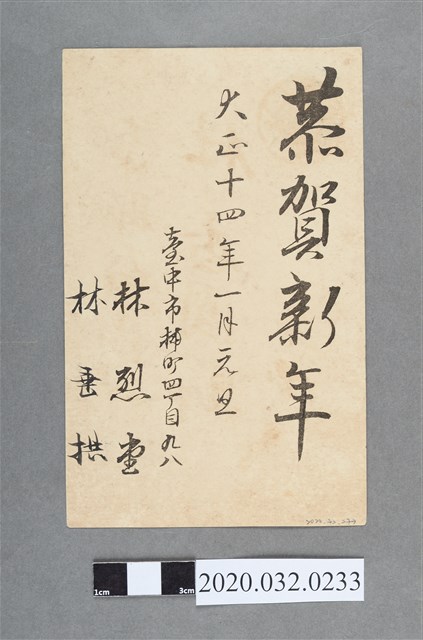 恭賀新年
大正十四年一月元旦
臺中市橘町四丁目九八
林烈堂
林垂拱
2020.032.0233
1cm 3cm